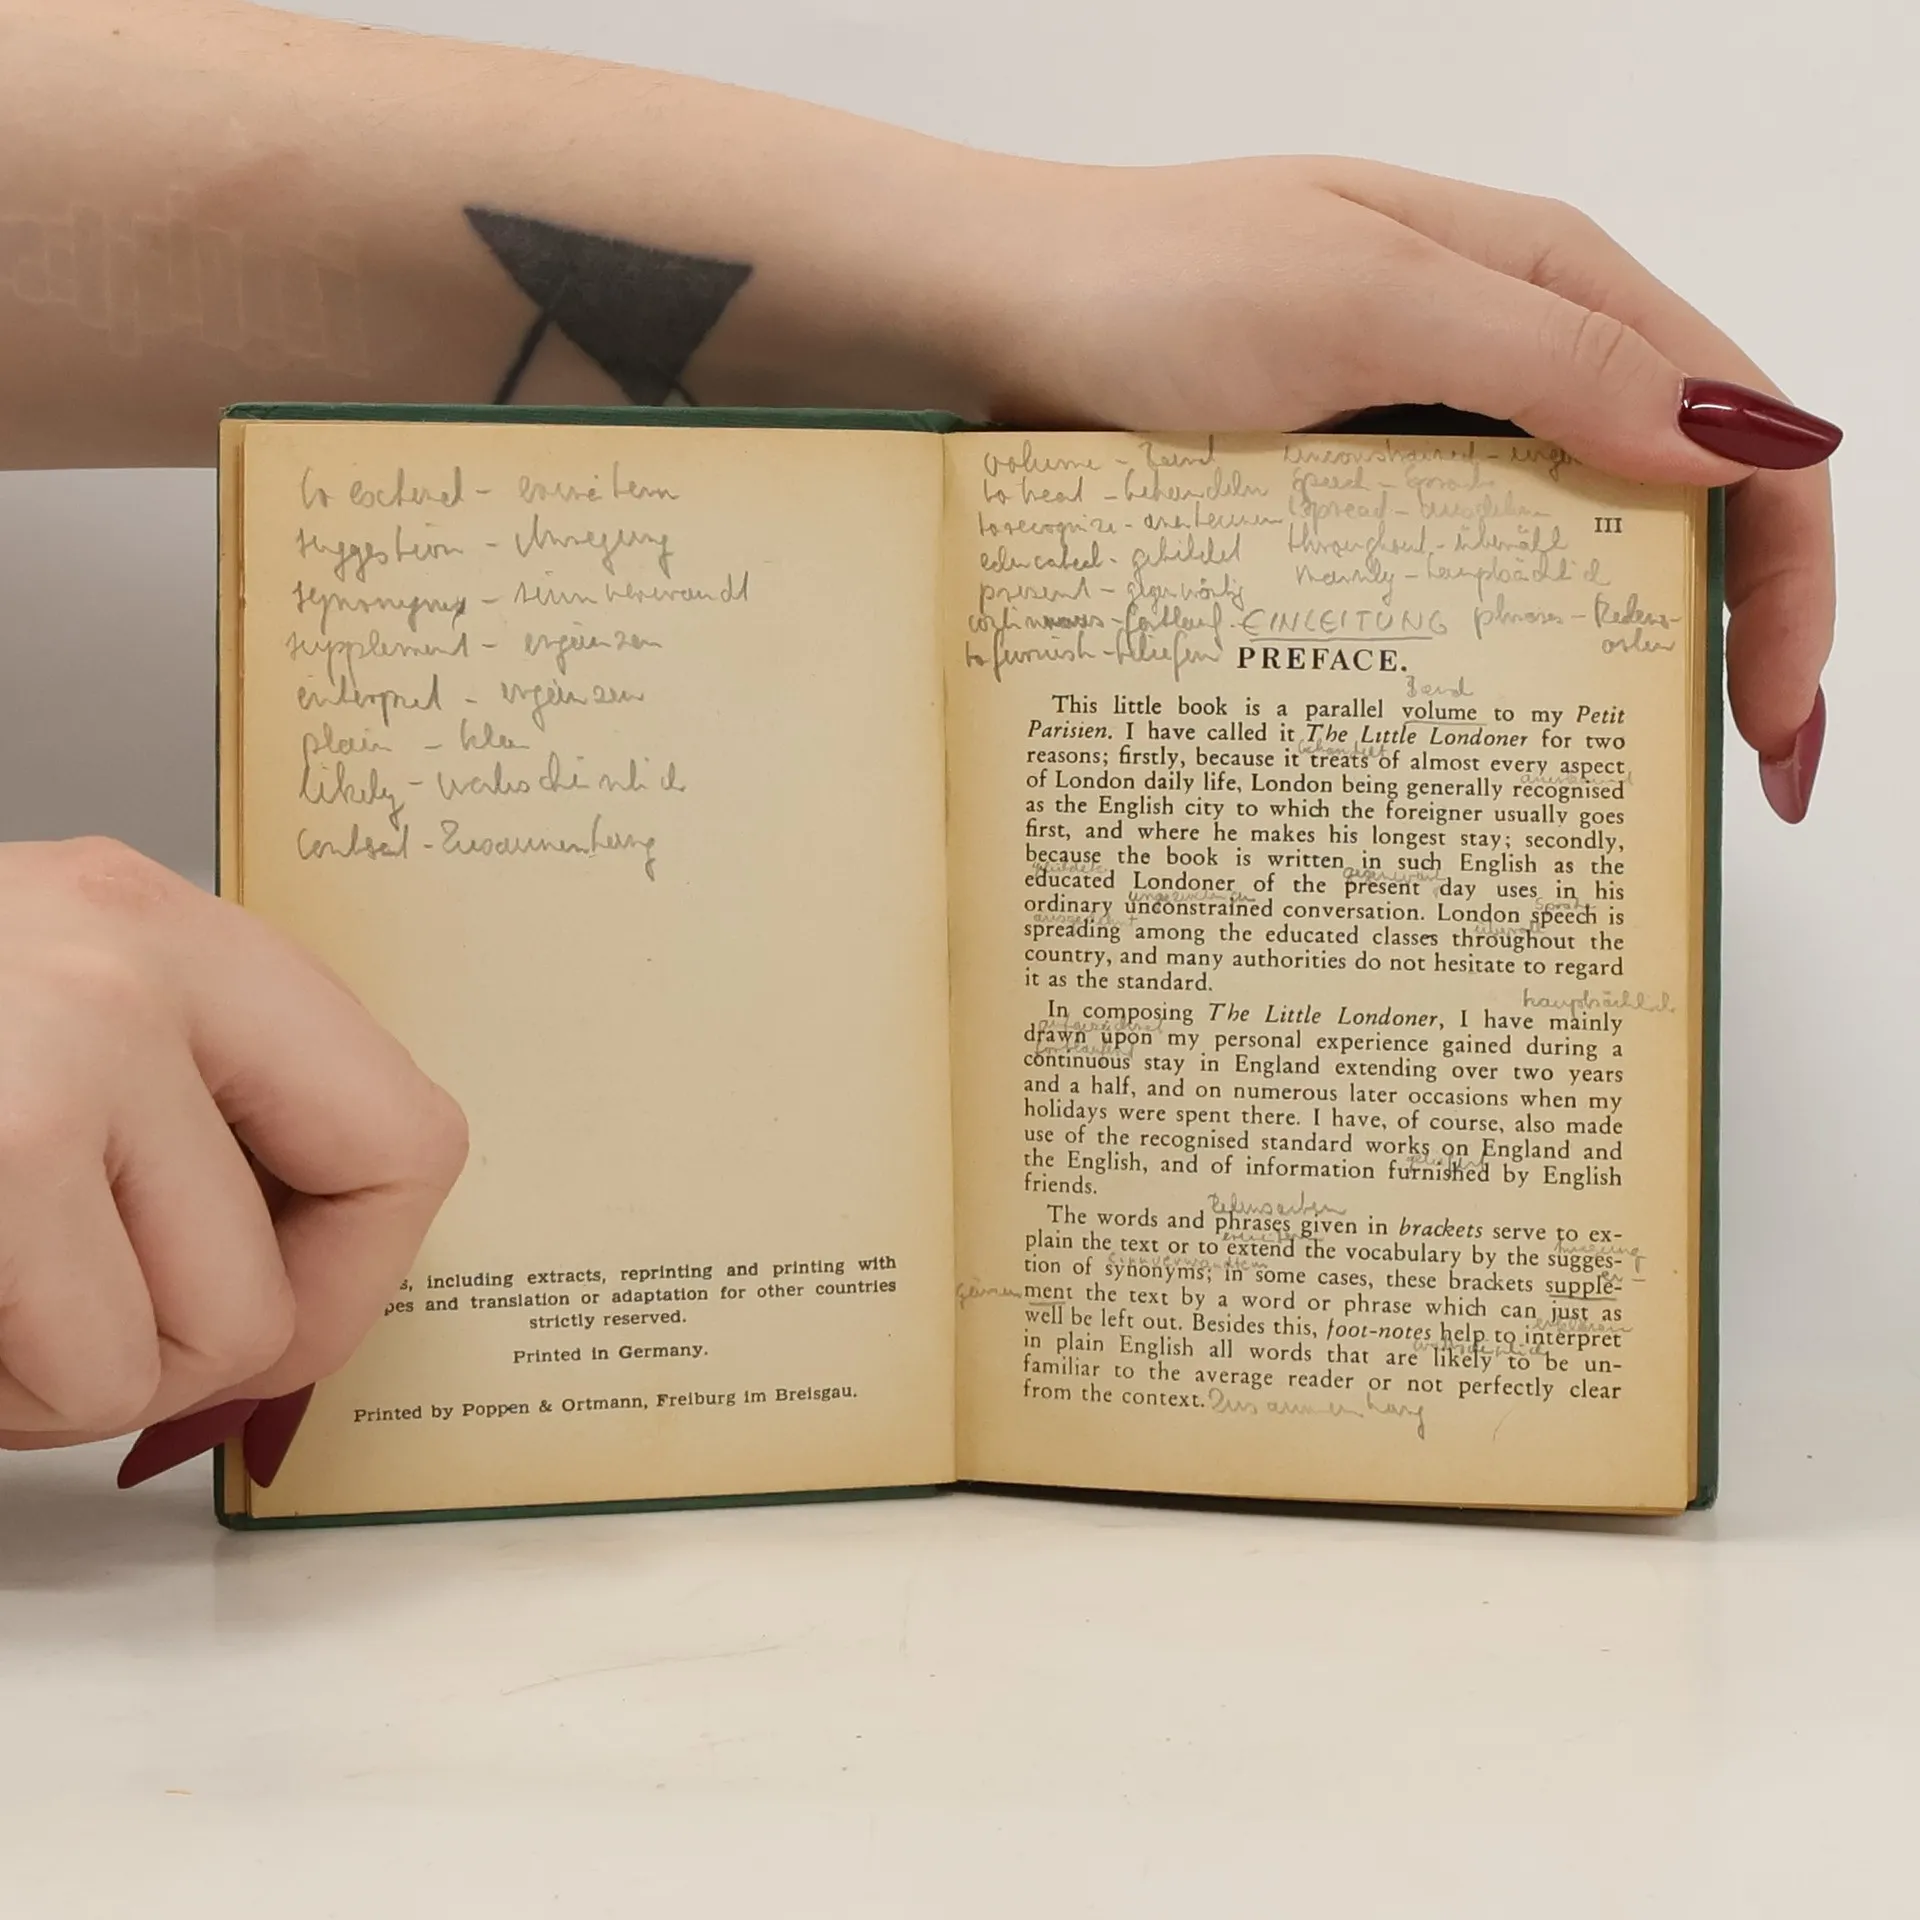 to extend - erweitern
suggestion - Anregung
synonymes - sinnverwandt
supplement - ergänzen
interpret - ergänzen
plain - klar
likely - wahrscheinlich
context - Zusammenhang
including extracts, reprinting and printing with
and translation or adaptation for other countries
strictly reserved.
Printed in Germany.
Printed by Poppen & Ortmann, Freiburg im Breisgau.
volume - Band
to treat - behandeln
to recognize - anerkennen
educated - gebildet
present - gegenwärtig
continuous - fortlauf.
to furnish - beliefern
unconstrained -
Speech - Sprache
spread - ausdehnen
throughout - überall
mainly - hauptsächlich
phrases - Redens-
arten
III
EINLEITUNG
PREFACE.
Band
This little book is a parallel volume to my Petit
Parisien. I have called it The Little Londoner for two
behandelt
reasons; firstly, because it treats of almost every aspect
anerkannt
of London daily life, London being generally recognised
as the English city to which the foreigner usually goes
first, and where he makes his longest stay; secondly,
because the book is written in such English as the
educated Londoner of the present day uses in his
Sprache
ordinary unconstrained conversation. London speech is
ausgedehnt überall
spreading among the educated classes throughout the
country, and many authorities do not hesitate to regard
it as the standard.
hauptsächlich
In composing The Little Londoner, I have mainly
drawn upon my personal experience gained during a
fortlaufend
continuous stay in England extending over two years
and a half, and on numerous later occasions when my
holidays were spent there. I have, of course, also made
use of the recognised standard works on England and
geliefert
the English, and of information furnished by English
friends.
Redensarten
The words and phrases given in brackets serve to ex-
erweitern Anregung
plain the text or to extend the vocabulary by the sugges-
sinnverwandten er-
tion of synonyms; in some cases, these brackets supple-
gänzen
ment the text by a word or phrase which can just as
erklären
well be left out. Besides this, foot-notes help to interpret
wahrscheinlich
in plain English all words that are likely to be un-
familiar to the average reader or not perfectly clear
from the context. Zusammenhang